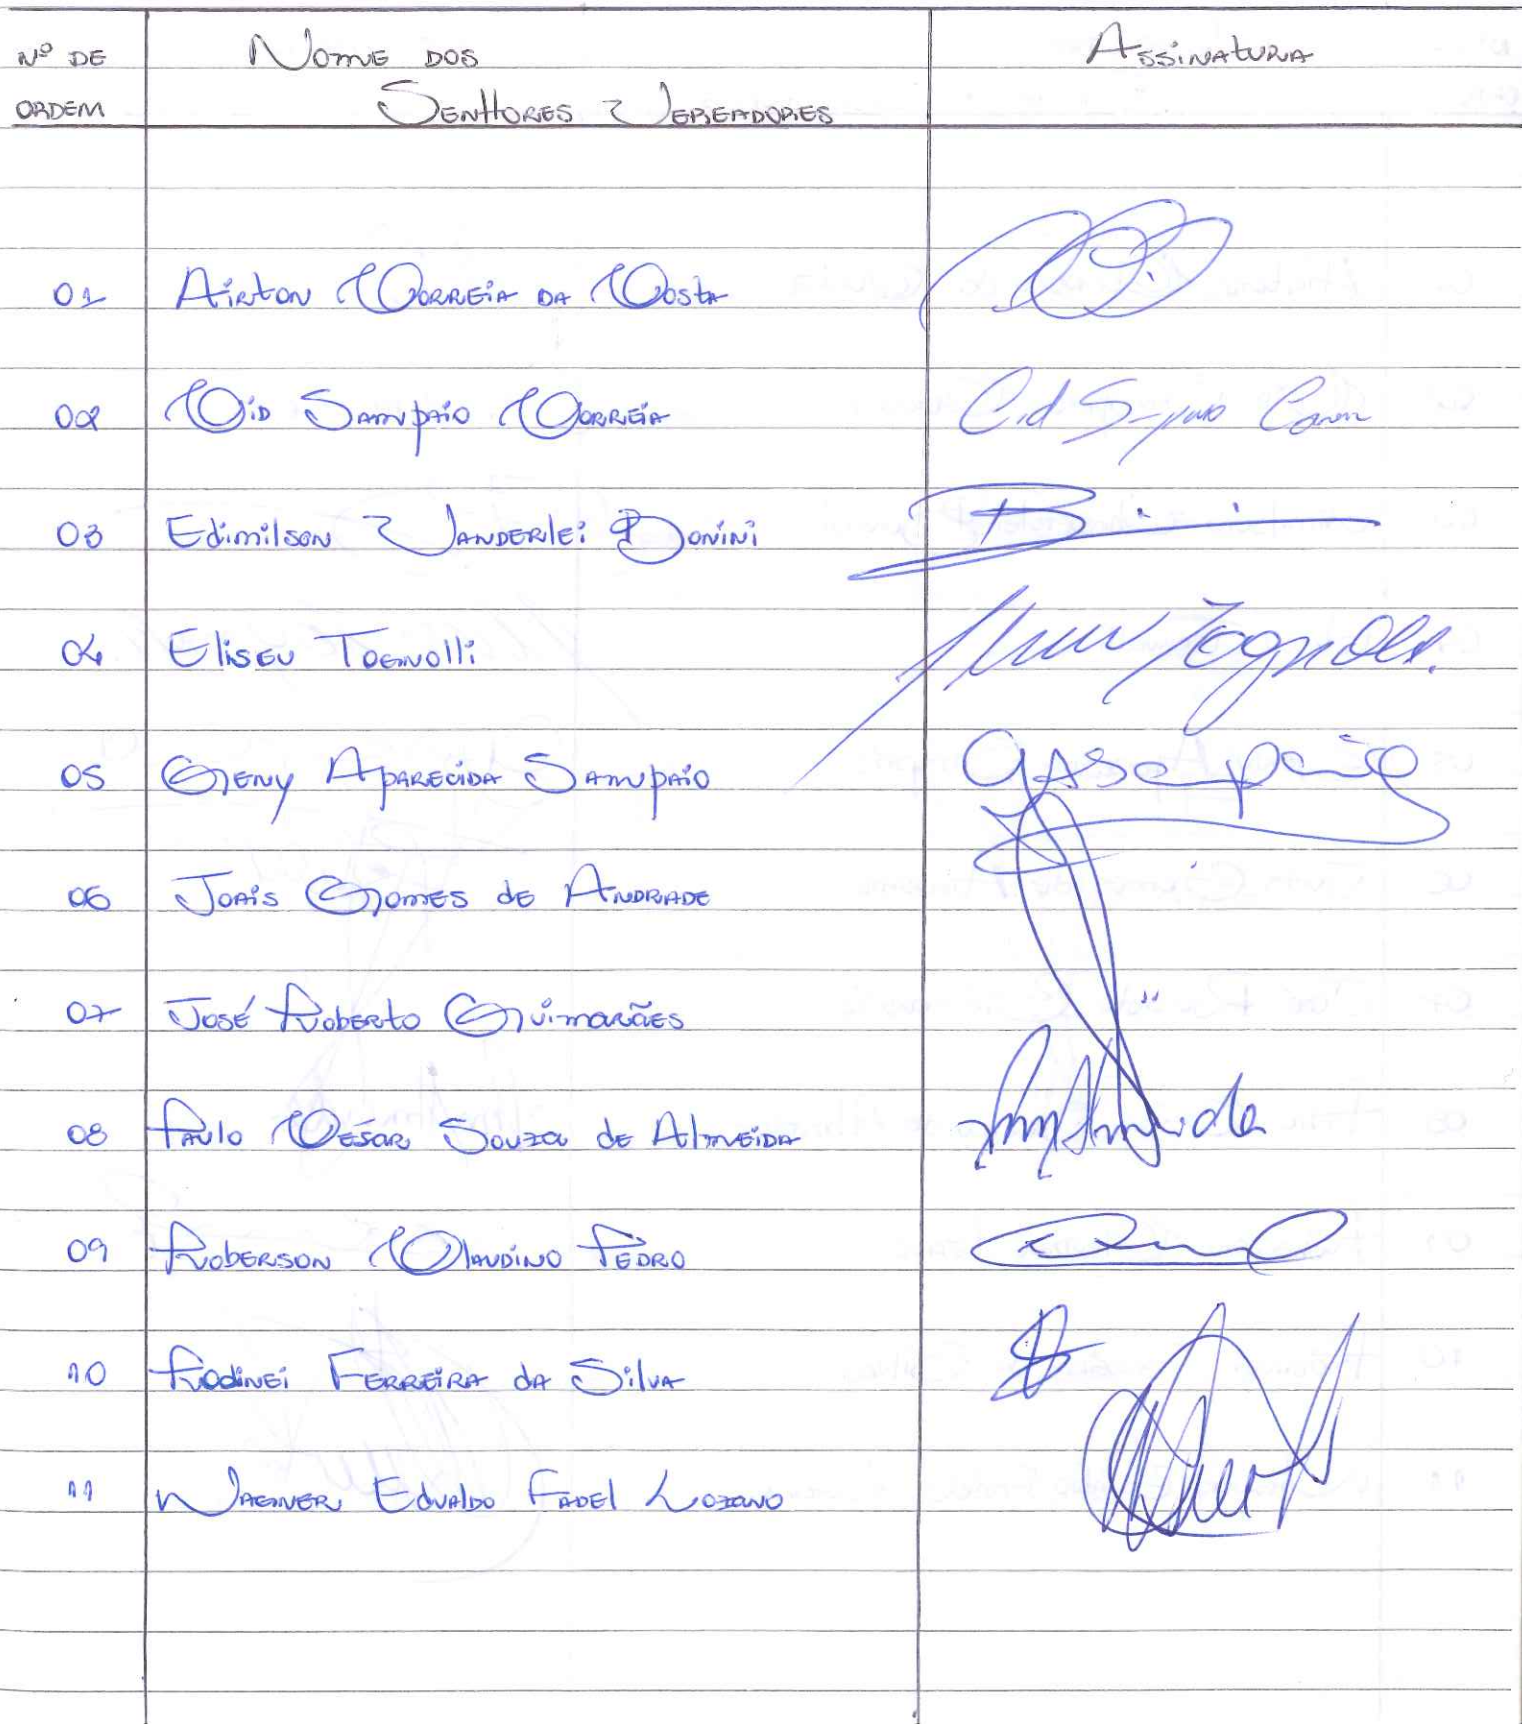 Nº DE Nome dos Assinatura
ORDEM Senhores Vereadores
01 Airton Correia da Costa
02 Cid Sampaio Correia Cid
03 Edimilson Vanderlei Bonini
04 Eliseu Tognolli Tognolli
05 Geny Aparecida Sampaio GASampaio
06 Joais Gomes de Andrade
07 José Roberto Guimarães
08 Paulo César Souza de Almeida
09 Roberson Claudino Pedro
10 Rodinei Ferreira da Silva
11 Wagner Edvaldo Fadel Lozano